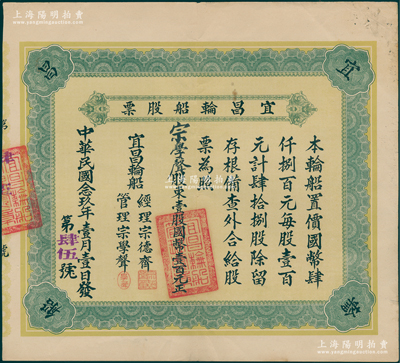 上海陽明拍賣
www.yangmingauction.com
宜
昌
輪
船
宜昌輪船股票
本輪船置價國幣肆
仟捌百元每股壹百
元計肆拾捌股除留
存根備查外合給股
票為
宗學 東壹股國幣壹百元正
宜昌輪船
經理宗德齊
管理宗學聲
中華民國念玖年壹月壹日發
第肆伍號
第
號